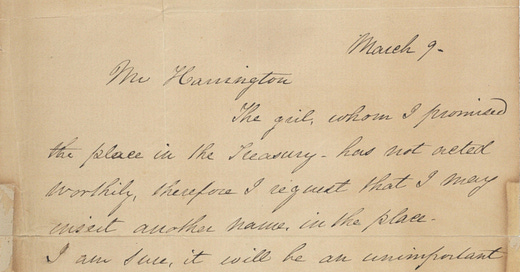 March 9-
Mr Harrington
The girl, whom I promised
the place in the Treasury - has not acted
worthily, therefore I request that I may
insert another name, in the place-
I am sure, it will be an unimportant